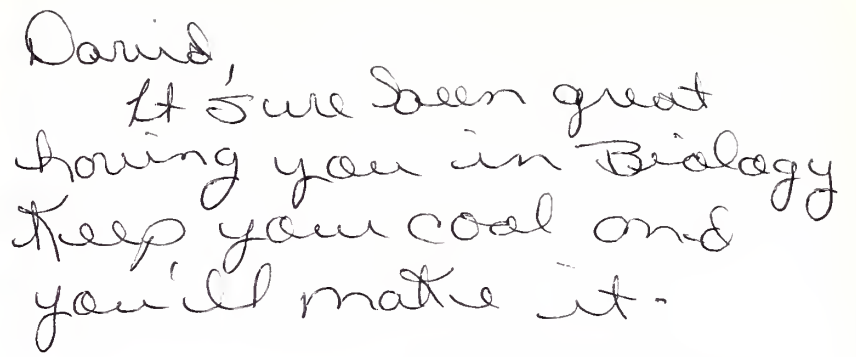 David,
It sure been great
having you in Biology
Keep your cool and
you'll make it.